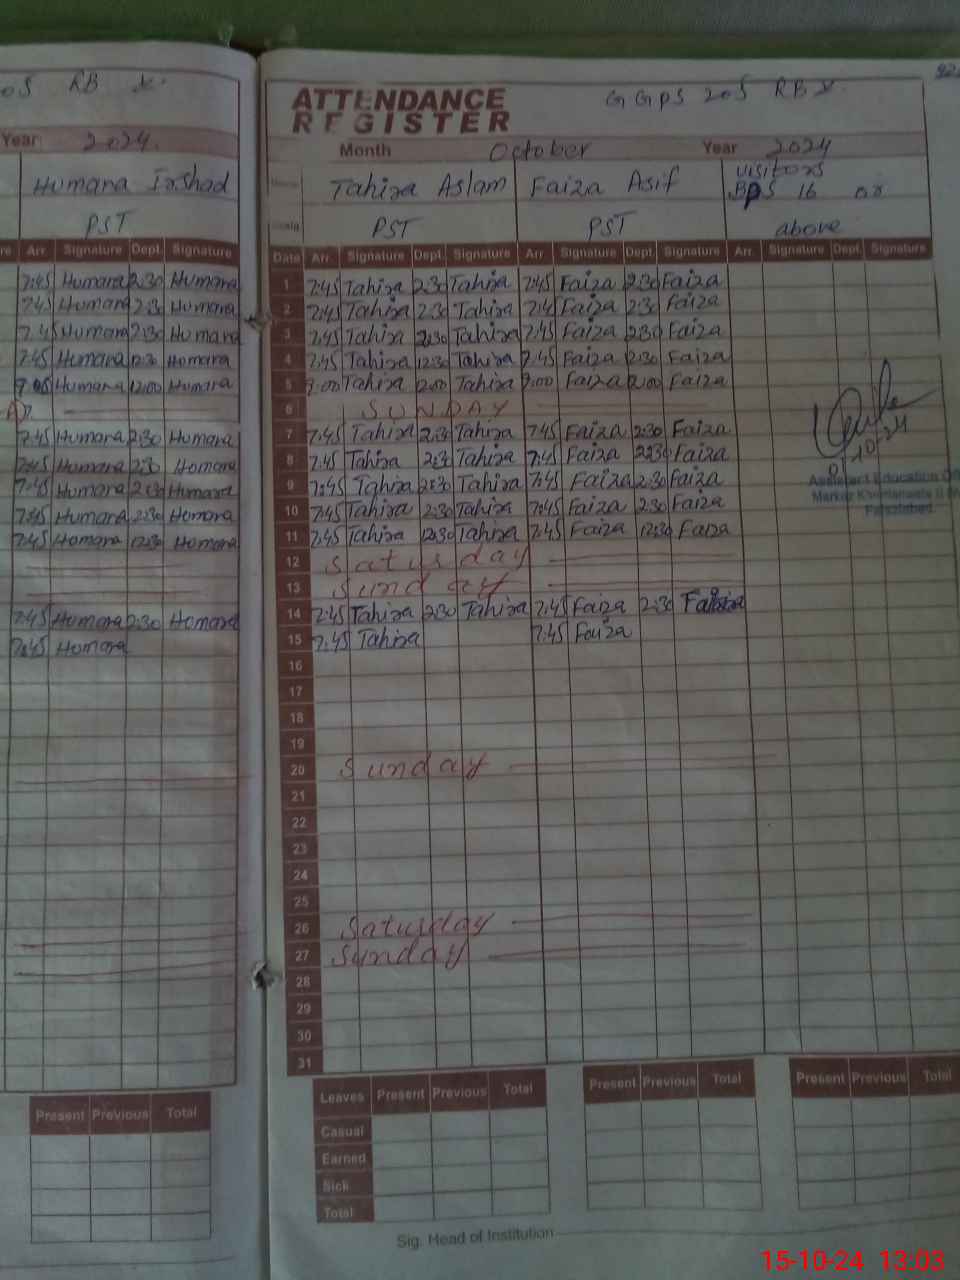 RB
Year 2024
Humara Irshad
PST
Arr. Signature Dept. Signature
7:45 Humara 2:30 Humara
7:45 Humara 2:30 Humara
7:45 Humara 2:30 Humara
7:45 Humara 12:30 Humara
Humara 12:00 Humara
7:45 Humara 2:30 Humara
7:45 Humara 2:30 Humara
7:45 Humara 2:30 Humara
7:45 Humara 2:30 Humara
7:45 Humara 12:30 Humara
7:45 Humara 2:30 Humara
7:45 Humara
Present Previous Total
ATTENDANCE REGISTER
GGPS 205 RB
Month October Year 2024
Name Tahira Aslam Faiza Asif visitors
BPS 16 or
Desig PST PST above
Date Arr. Signature Dept. Signature Arr Signature Dept. Signature Arr. Signature Dept. Signature
1 7:45 Tahira 2:30 Tahira 7:45 Faiza 2:30 Faiza
2 7:45 Tahira 2:30 Tahira 7:45 Faiza 2:30 Faiza
3 7:45 Tahira 2:30 Tahira 7:45 Faiza 2:30 Faiza
4 7:45 Tahira 12:30 Tahira 7:45 Faiza 12:30 Faiza
5 9:00 Tahira 12:00 Tahira 9:00 Faiza 12:00 Faiza
6 SUNDAY
7 7:45 Tahira 2:30 Tahira 7:45 Faiza 2:30 Faiza
8 7:45 Tahira 2:30 Tahira 7:45 Faiza 2:30 Faiza
9 7:45 Tahira 2:30 Tahira 7:45 Faiza 2:30 Faiza
10 7:45 Tahira 2:30 Tahira 7:45 Faiza 2:30 Faiza
11 7:45 Tahira 12:30 Tahira 7:45 Faiza 12:30 Faiza
12 Saturday
13 Sunday
14 7:45 Tahira 2:30 Tahira 7:45 Faiza 2:30 Faiza
15 7:45 Tahira 7:45 Faiza
16
17
18
19
20 Sunday
21
22
23
24
25
26 Saturday
27 Sunday
28
29
30
31
Assistant Education
Faisalabad
Leaves Present Previous Total Present Previous Total Present Previous Total
Casual
Earned
Sick
Total
Sig. Head of Institution
15-10-24 13:03